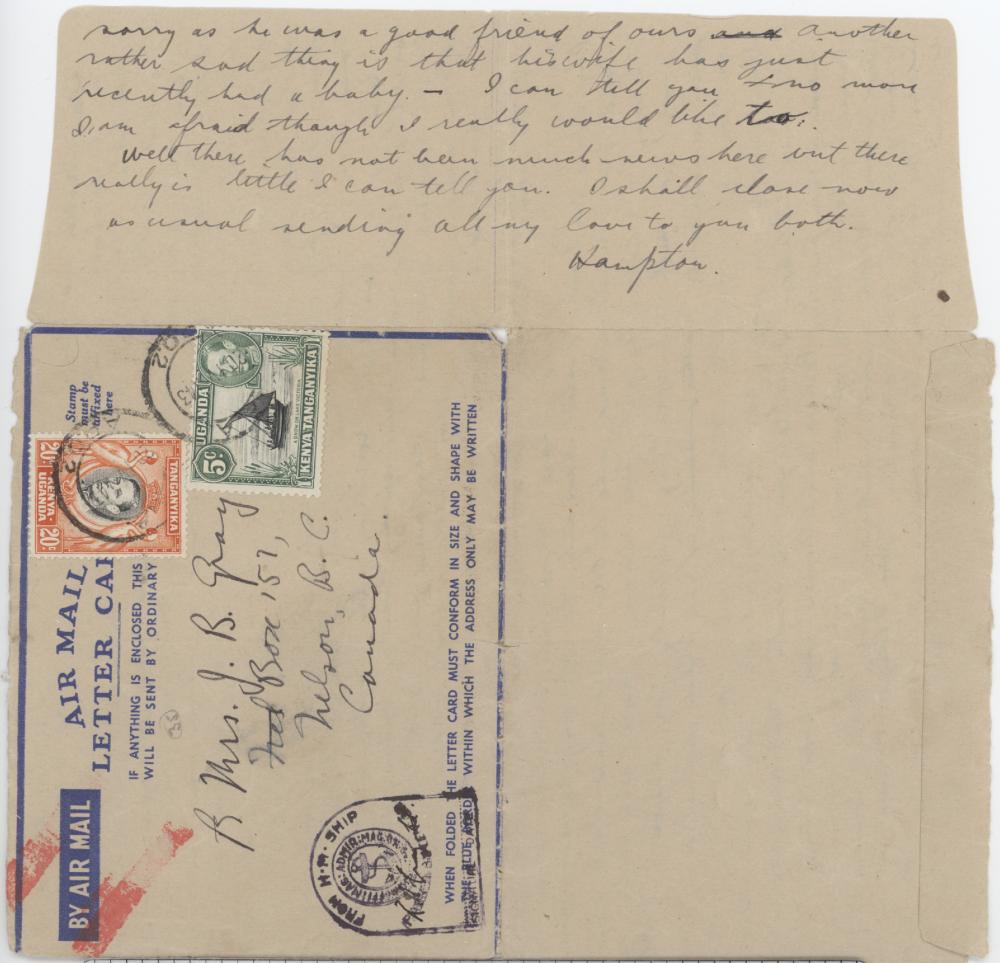 sorry as he was a good friend of ours and another
rather sad thing is that his wife has just
recently had a baby. — I can tell you no more
I am afraid though I really would like to.
Well there has not been much news here but there
really is little I can tell you. I shall close now
as usual sending all my love to you both.
Hampton.
Stamp
must be
affixed
here
AIR MAIL
LETTER CAR
IF ANYTHING IS ENCLOSED THIS
WILL BE SENT BY ORDINARY
BY AIR MAIL
TANGANYIKA
KENYA-
UGANDA
20c 20c
UGANDA
KENYA TANGANYIKA
5c
Mrs. J. B. Gray
Box 157,
Nelson, B. C.
Canada.
FROM H.M. SHIP
WHEN FOLDED THE LETTER CARD MUST CONFORM IN SIZE AND SHAPE WITH
THE BLUE WITHIN WHICH THE ADDRESS ONLY MAY BE WRITTEN